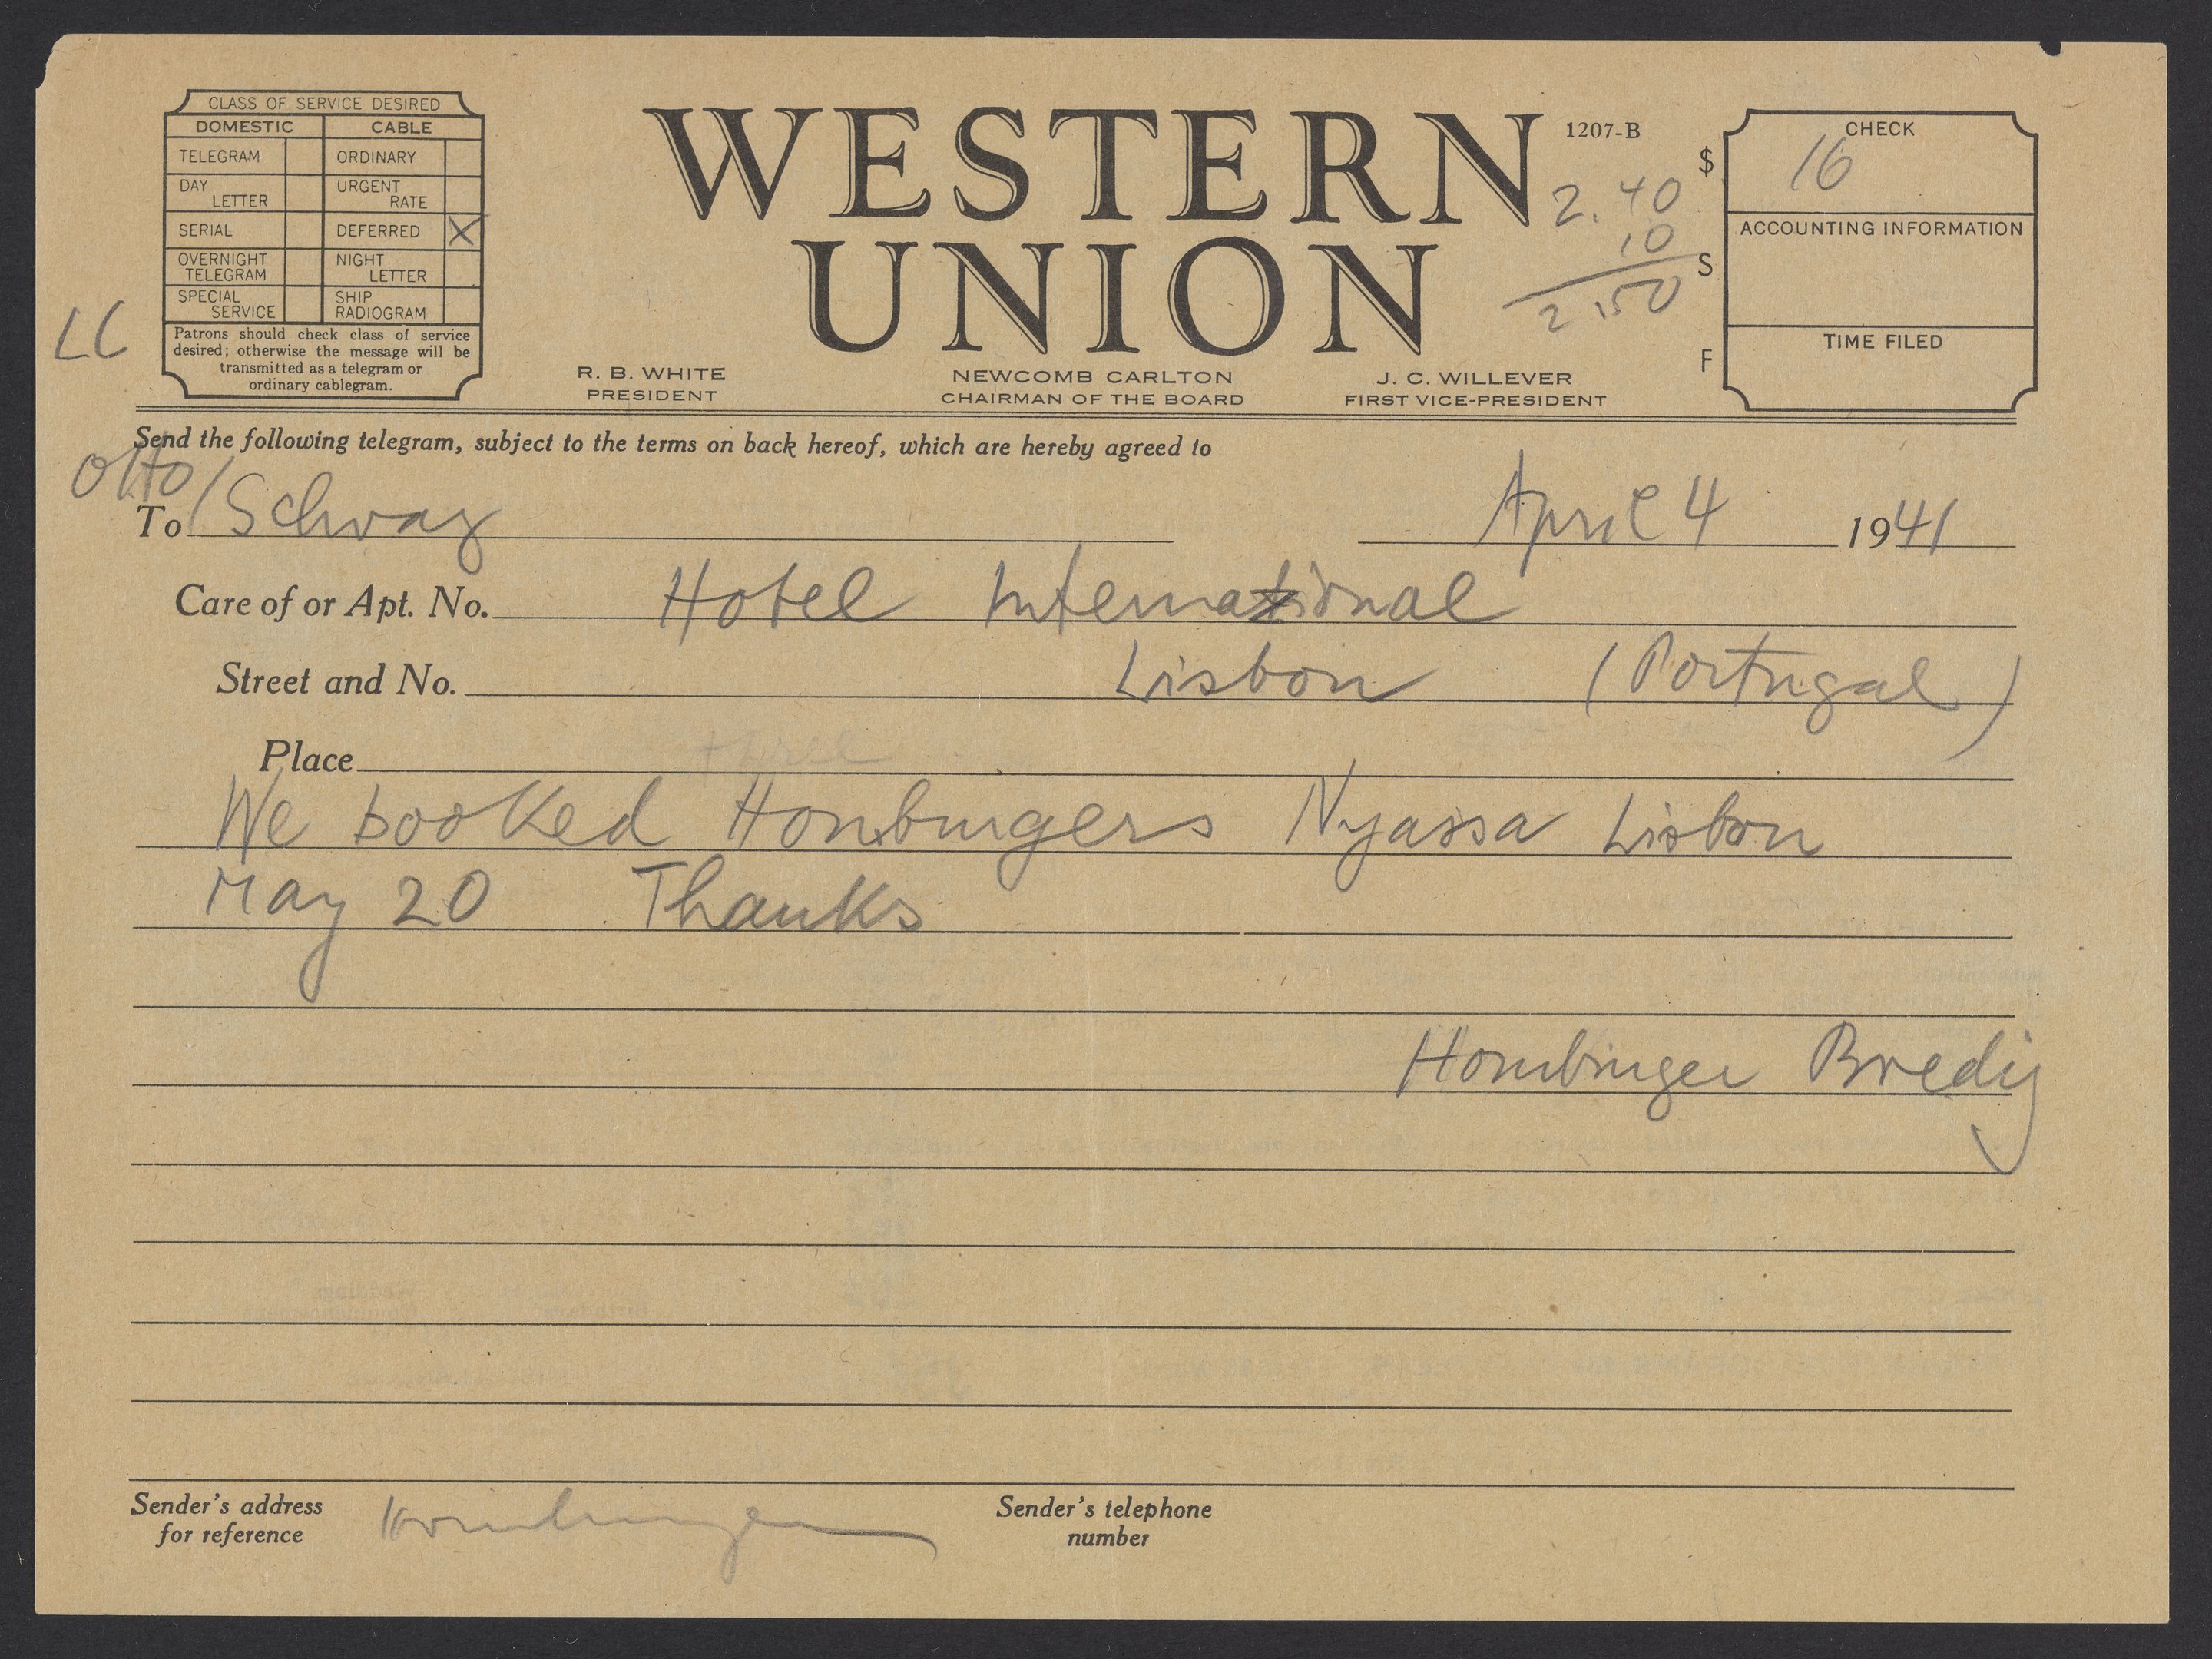 CLASS OF SERVICE DESIRED
DOMESTIC CABLE
TELEGRAM ORDINARY
DAY LETTER URGENT RATE
SERIAL DEFERRED X
OVERNIGHT TELEGRAM NIGHT LETTER
SPECIAL SERVICE SHIP RADIOGRAM
Patrons should check class of service
desired; otherwise the message will be
transmitted as a telegram or
ordinary cablegram.
LC
WESTERN
UNION
1207-B
2.40
10
2.50
$
S
F
R. B. WHITE
PRESIDENT
NEWCOMB CARLTON
CHAIRMAN OF THE BOARD
J. C. WILLEVER
FIRST VICE-PRESIDENT
CHECK
16
ACCOUNTING INFORMATION
TIME FILED
Send the following telegram, subject to the terms on back hereof, which are hereby agreed to
Otto
To Schwarz April 4 1941
Care of or Apt. No. Hotel International
Street and No. Lisbon (Portugal)
Place
We booked Homburgers Nyassa Lisbon
May 20 Thanks
Homburger Bredig
Sender's address
for reference
Homburger
Sender's telephone
number